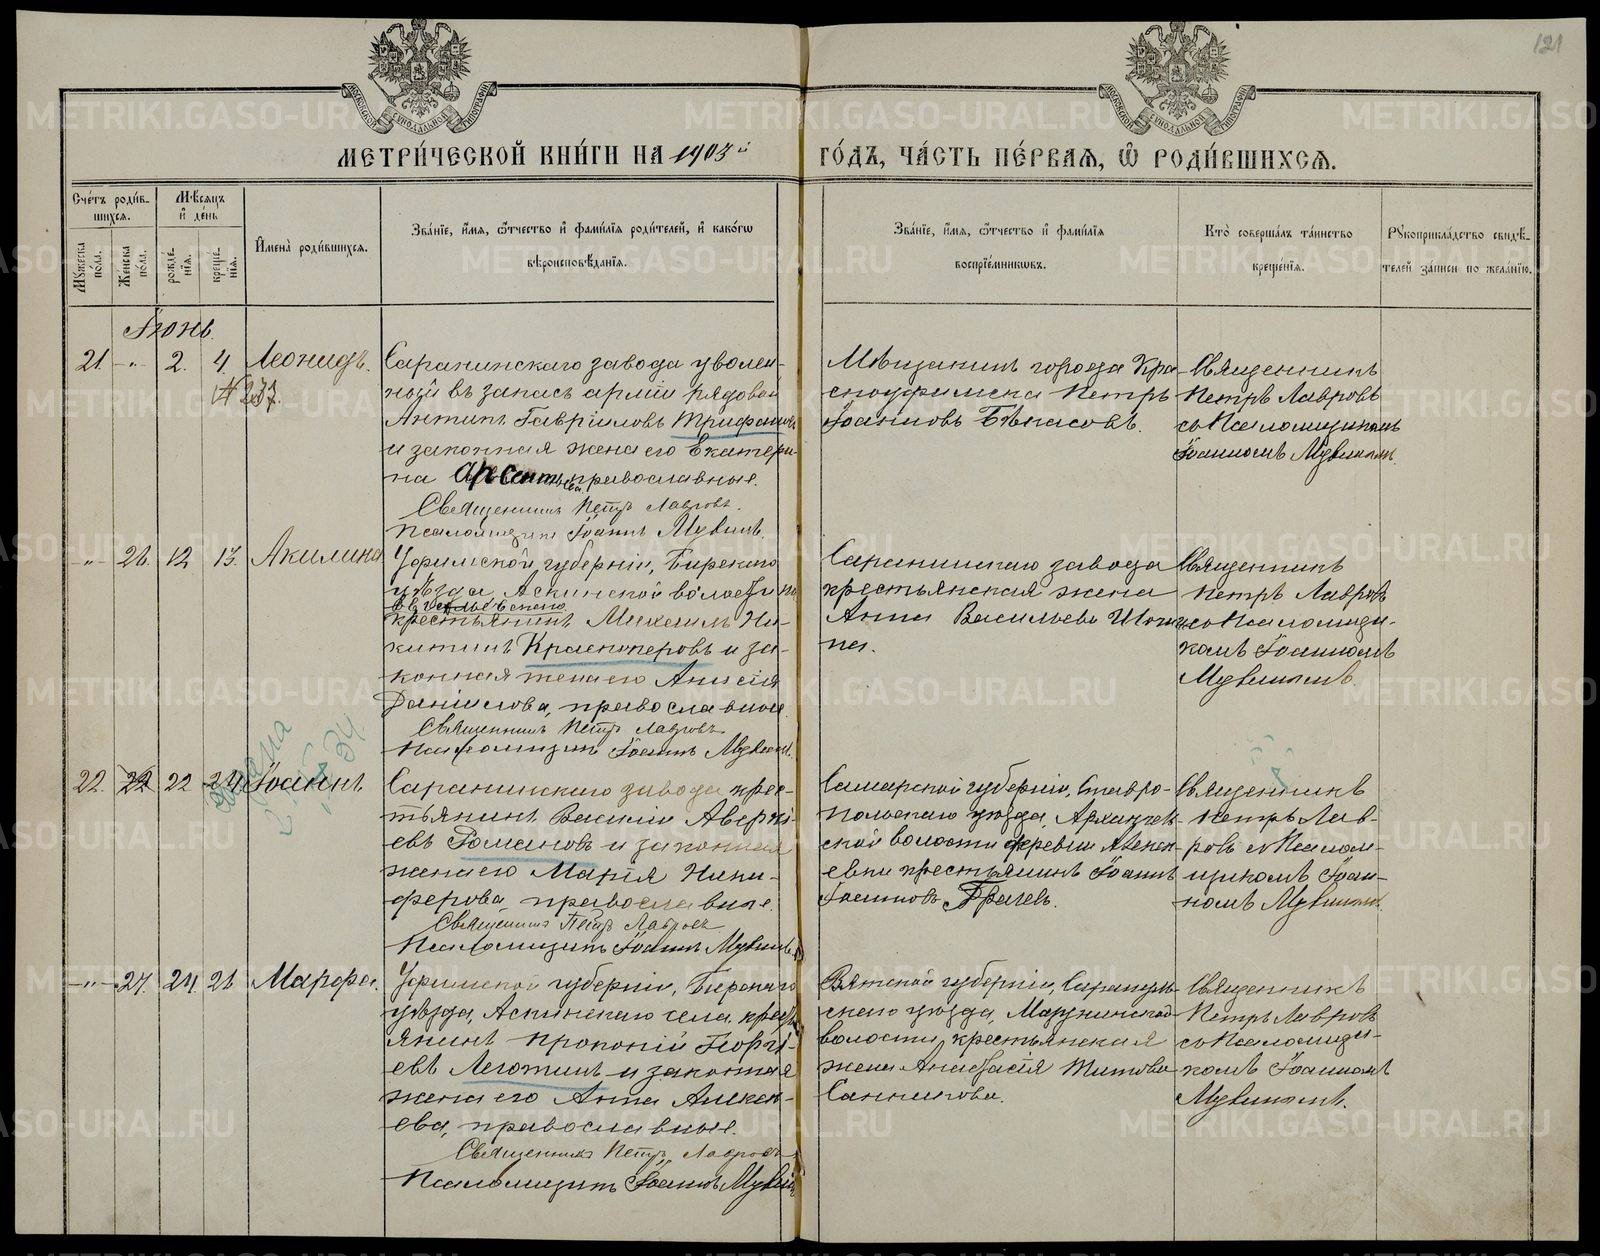 121
МЕТРИ́ЧЕСКОЙ КНИ́ГИ НА 1903й ГО́ДЪ, ЧА́СТЬ ПЕ́РВАѦ, Ѽ РОДИ́ВШИХСѦ.
Сче́тъ роди́в-
шихсѧ.
Мѣ́сяцъ
и҆ де́нь
Мꙋ́жеска
по́ла.
Же́нска
по́ла.
рожде́-
нїѧ.
креще́-
нїѧ.
И҆мена̀ роди́вшихсѧ.
Зва́нїе, и҆́мѧ, ѻ҆́тчество и҆ фами́лїѧ роди́телей, и҆ како́гѡ
вѣроисповѣ́данїѧ.
Зва́нїе, и҆́мѧ, ѻ҆́тчество и҆ фами́лїѧ
воспрїе́мниковъ.
Кто̀ соверша́лъ та́инство
креще́нїѧ.
Рꙋкоприкла́дство свидѣ́-
телей за́писи по жела́нїю.
Іюнь.
21. -"- 2. 4. Леонидъ.
№ 237.
Саранинскаго завода уволен-
ный въ запасъ арміи рядовой
Антипъ Гавріиловъ Трифановъ
и законная жена его Екатери-
на Арсентьева, православные.
Священникъ Петръ Лавровъ.
Псаломщикъ Іоаннъ Мукинъ.
Мѣщанинъ города Кра-
сноуфимска Петръ
Іоанновъ Бѣкасовъ.
Священникъ
Петръ Лавровъ
съ Псаломщикомъ
Іоанномъ
-"- 26. 12 13. Акилина
Уфимской губерніи, Бирскаго
уѣзда, Аскинской волости
крестьянинъ Михаилъ Ни-
китинъ Красноперовъ и за-
конная жена его Анисія
Даніилова, православные.
Священникъ Петръ Лавровъ.
Псаломщикъ Іоаннъ
Саранинскаго завода
крестьянская жена
Анна Васильева
Священникъ
Петръ Лавровъ
съ Псаломщи-
комъ Іоанномъ
22. 22 22 24 Іоаннъ
Саранинскаго завода крес-
тьянинъ Василій Аверкі-
евъ Романовъ и законная
жена его Марія Ники-
ферова, православные.
Священникъ Петръ Лавровъ
Псаломщикъ Іоаннъ
Самарской губерніи, Ставро-
польскаго уѣзда, Архангель-
ской волости деревни Алексѣ-
евки крестьянинъ Іоаннъ
Іоанновъ Грачев.
Священникъ
Петръ Лав-
ровъ съ Псалом-
щикомъ Іоан-
номъ
-"- 27. 24. 26 Марфа.
Уфимской губерніи, Бирскаго
уѣзда, Аскинскаго села, крест-
янинъ Прокопій Георгі-
евъ Леготинъ и законная
жена его Анна Алексѣ-
ева, православные.
Священникъ Петръ Лавровъ
Псаломщикъ Іоаннъ
Вятской губерніи, Сарапуль-
скаго уѣзда,
волости, крестьянская
жена Анастасія Титова
Санникова.
Священникъ
Петръ Лавровъ
съ Псаломщи-
комъ Іоанномъ
METRIKI.GASO-URAL.RU